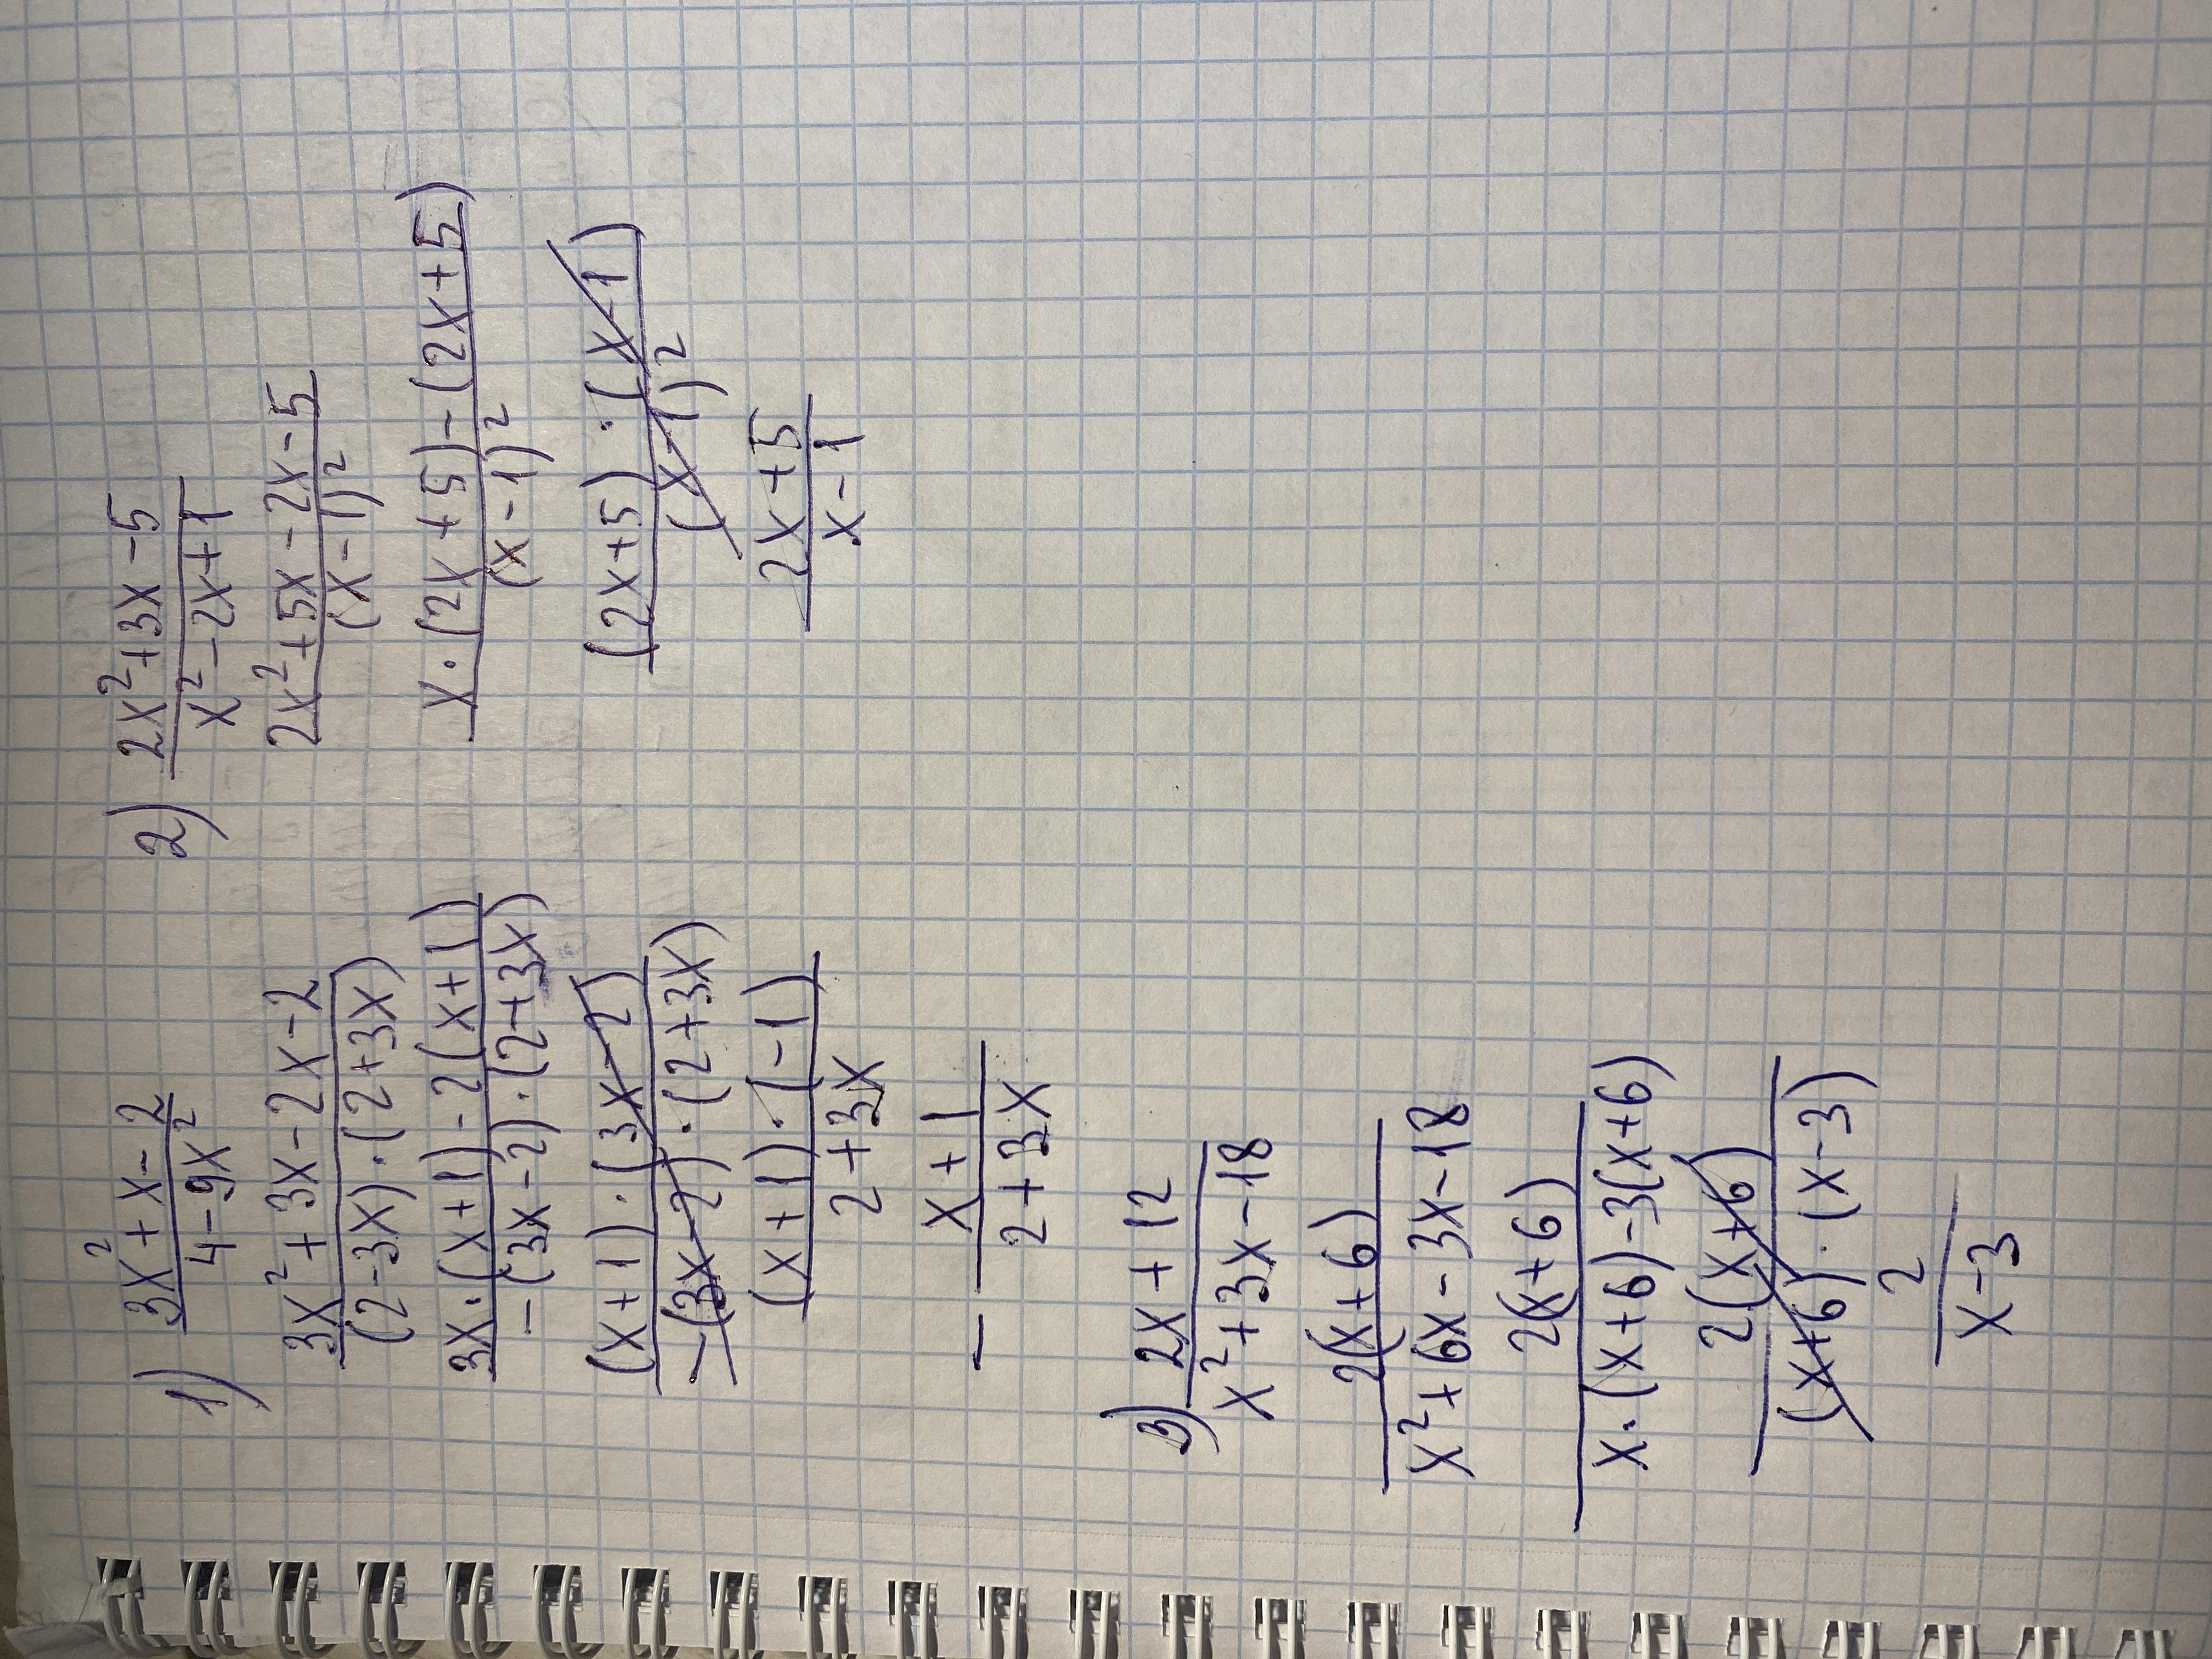 1) (3x² + x - 2)/(4 - 9x²)
(3x² + 3x - 2x - 2)/((2 - 3x) · (2 + 3x))
(3x · (x + 1) - 2(x + 1))/(-(3x - 2) · (2 + 3x))
((x + 1) · (3x - 2))/(-(3x - 2) · (2 + 3x))
((x + 1) · (-1))/(2 + 3x)
- (x + 1)/(2 + 3x)
2) (2x² + 3x - 5)/(x² - 2x + 1)
(2x² + 5x - 2x - 5)/((x - 1)²)
(x · (2x + 5) - (2x + 5))/((x - 1)²)
((2x + 5) · (x - 1))/((x - 1)²)
(2x + 5)/(x - 1)
3) (2x + 12)/(x² + 3x - 18)
(2(x + 6))/(x² + 6x - 3x - 18)
(2(x + 6))/(x · (x + 6) - 3(x + 6))
(2(x + 6))/((x + 6) · (x - 3))
2/(x - 3)